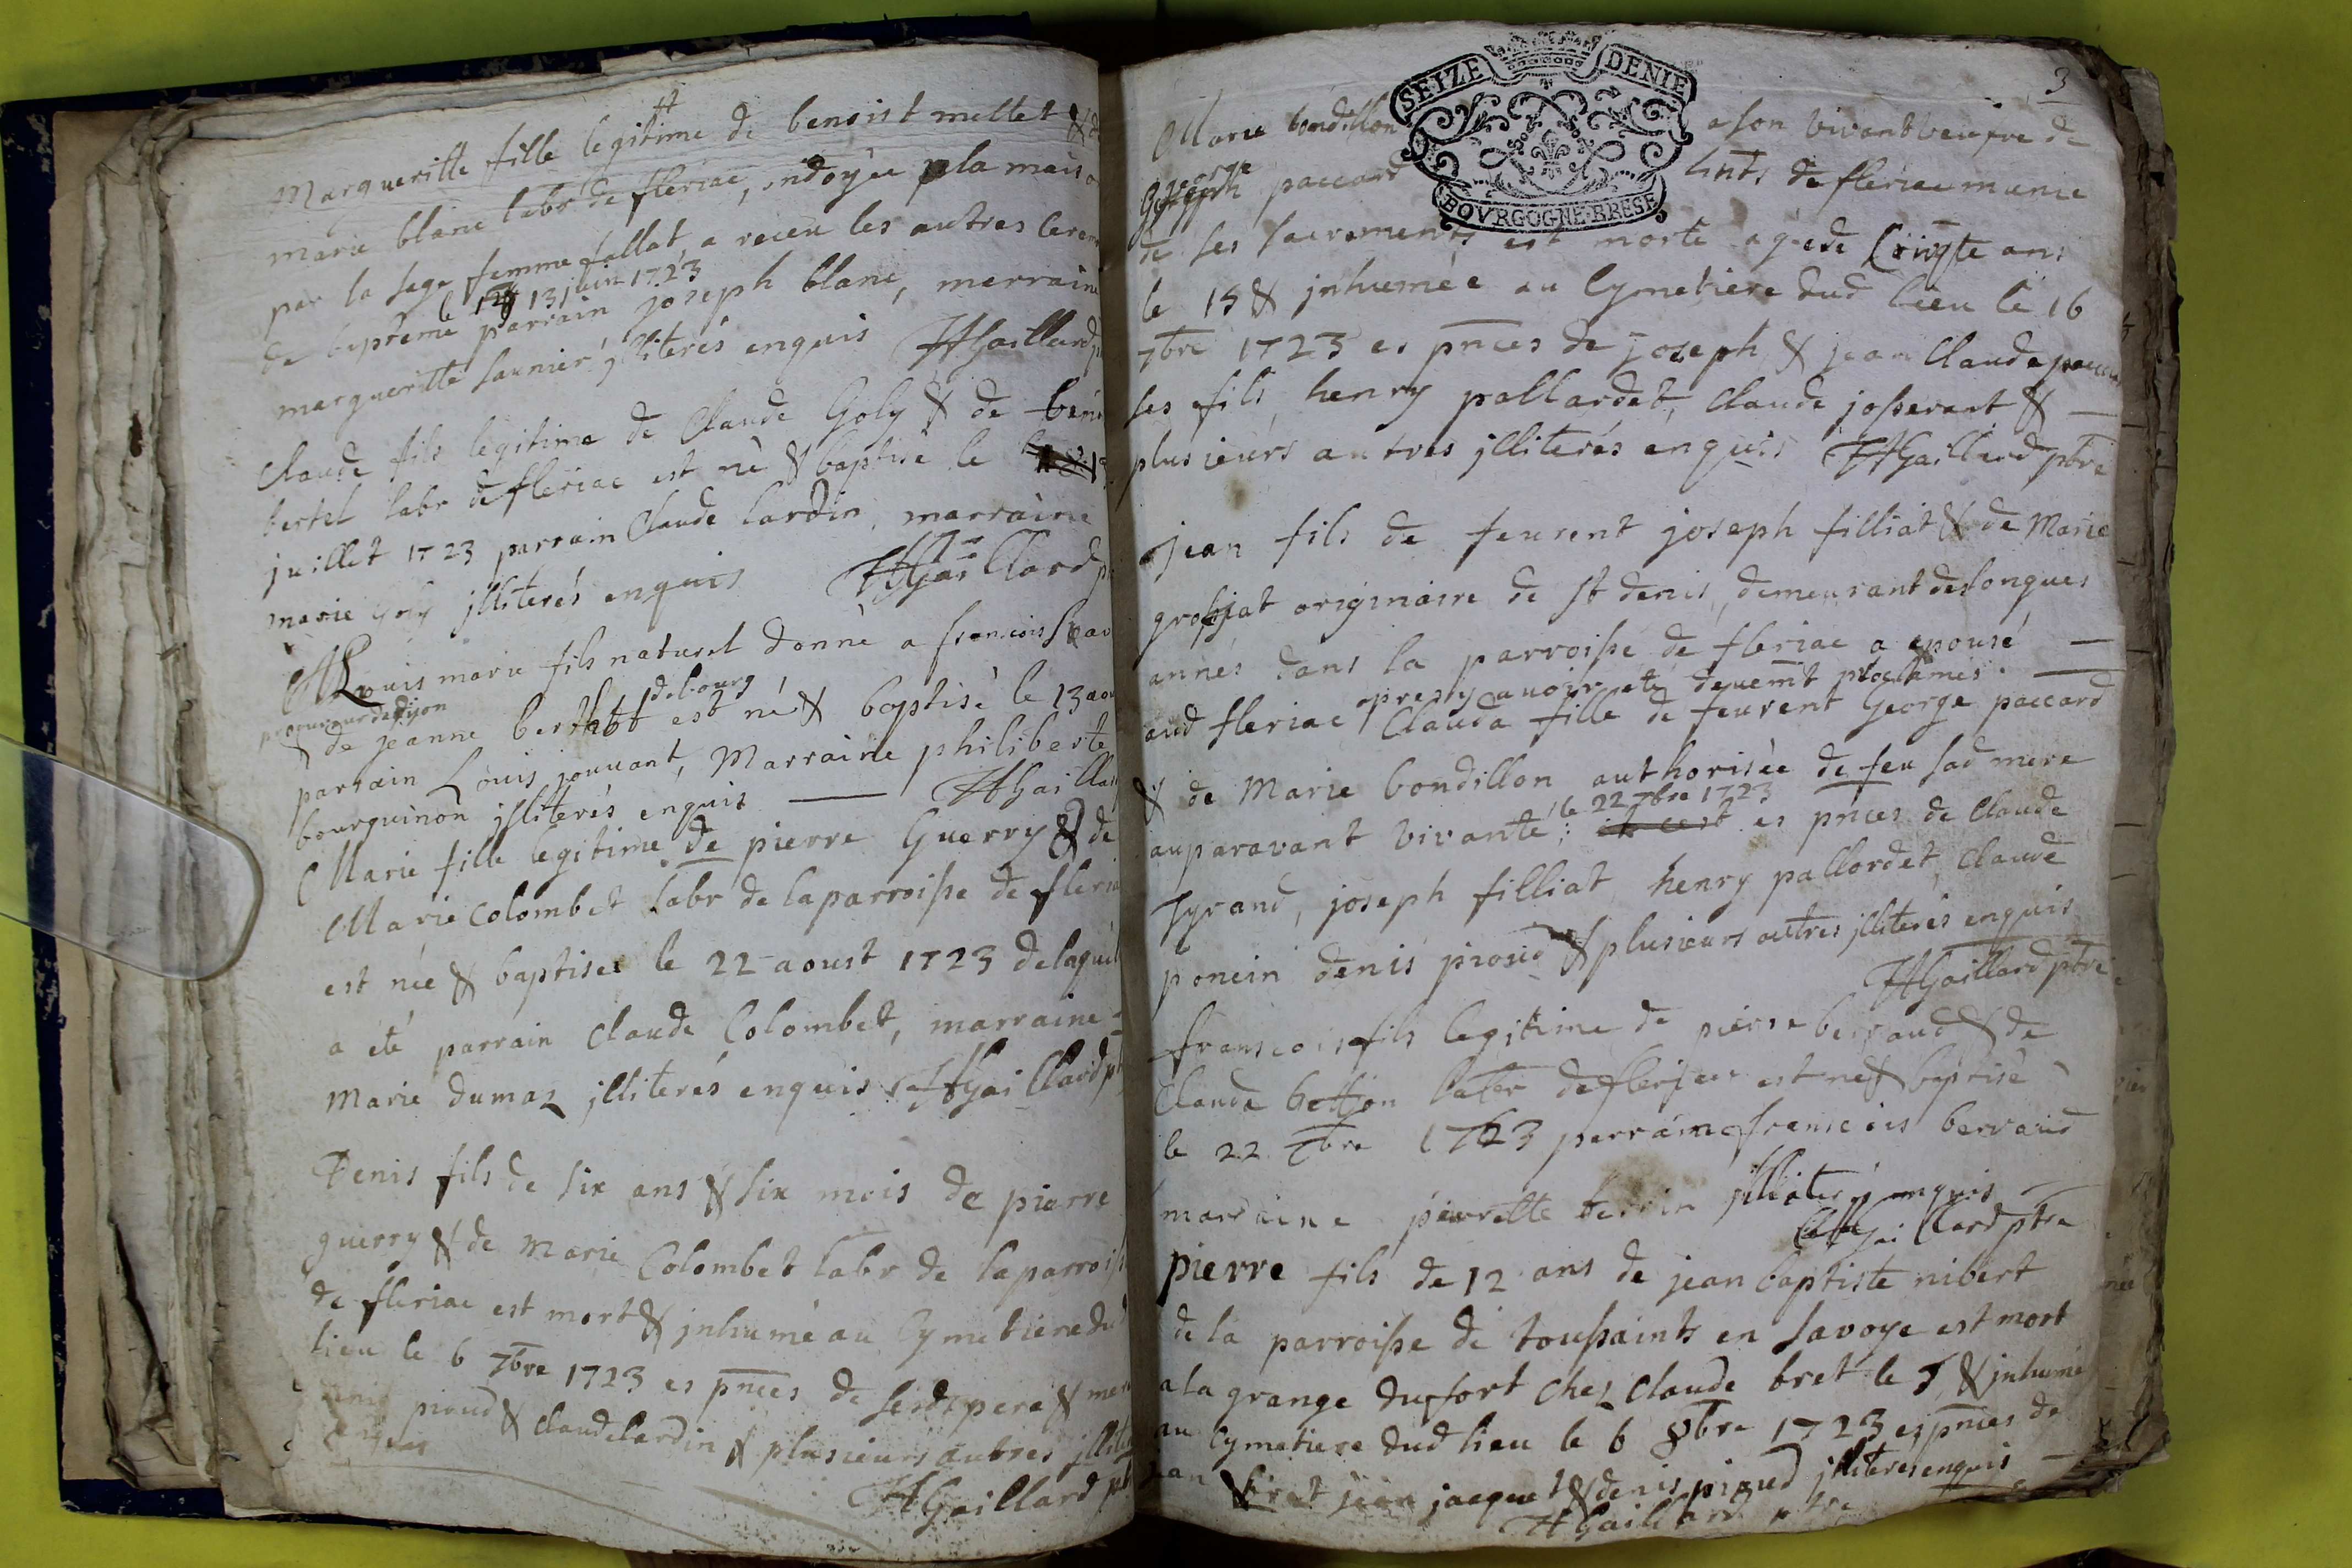 Margueritte fille legitime de benoist mettet &
marie blanc labr de fleriac, indoyée
par la sage femme fallat, a receu les autres
le 13 juin 1723
de bapteme parrain joseph blanc, merraine
margueritte saunier jlliterés enquis HGaillard
Claude fils legitime de Claude Goly & de
bertel labr de fleriac est né & baptisé le
juillet 1723 parrain Claude lardin, marraine
marie goly jlliterés enquis HGaillard
Louis marie fils naturel donné a francois
procureur de dijon
de bourg
de jeanne est né & baptisé le 13
parrain Louis jouvant, Marraine philiberte
bourguinon jlliterés enquis HGaillard
Marie fille legitime de pierre Guerry & de
Marie Colombet labr de la parroisse de
est née & baptisée le 22 aoust 1723
a été parrain Claude Colombet, marraine
Marie dumaz jlliterés enquis HGaillard
Denis fils de six ans & six mois de pierre
guerry & de Marie Colombet labr de la
de fleriac est mort & jnhumé au Cymetiere
lieu le 6 7bre 1723 es pnces de sesds pere &
pioud & claude lardin & plusieurs autres
enquis
HGaillard
3
SEIZE DENIE
BOVRGOGNE·BRESE
Marie bondillon a son vivant veufve de
george
joseph paccard de fleriac munie
de ses sacrements est morte agée de ans
le 15 & jnhumée au Cymetiere dud lieu le 16
7bre 1723 es pnces de joseph & jean Claude
ses fils, henry pallardet, Claude josserant &
plusieurs autres jlliterés enquis HGaillard ptre
jean fils de feu rent joseph filliat & de Marie
grossiat originaire de st denis, demeurant de longues
annés dans la parroisse de fleriac a epousé
apres y auoir eté deuemt proclamés
aud fleriac Clauda fille de feu rent George paccard
& de Marie bondillon authorisée de feu sad mere
le 22 7bre 1723
auparavant vivante; es pnces de Claude
Tyrand, joseph filliat henry pallordet, Claude
poncin denis pioud & plusieurs autres jlliterés enquis
HGaillard ptre
francois fils legitime de pierre berraud & de
Clauda labr de fleriac est né & baptisé
le 22 7bre 1723 parrain francois berraud
marraine pierrette jlliterés enquis
Gaillard ptre
pierre fils de 12 ans de jean baptiste nibert
de la parroisse de toussaints en savoye est mort
a la grange du fort chez Claude bret le 5 & jnhumé
au Cymetiere dud lieu le 6 8bre 1723 es pnces de
jean bret jean jacquet & denis pioud jlliterés enquis
HGaillard ptre